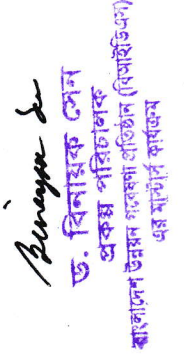 Binayak Sen
ড. বিনায়ক সেন
প্রকল্প পরিচালক
বাংলাদেশ উন্নয়ন গবেষণা প্রতিষ্ঠান (বিআইডিএস)
এর মাস্টার্স কার্যক্রম